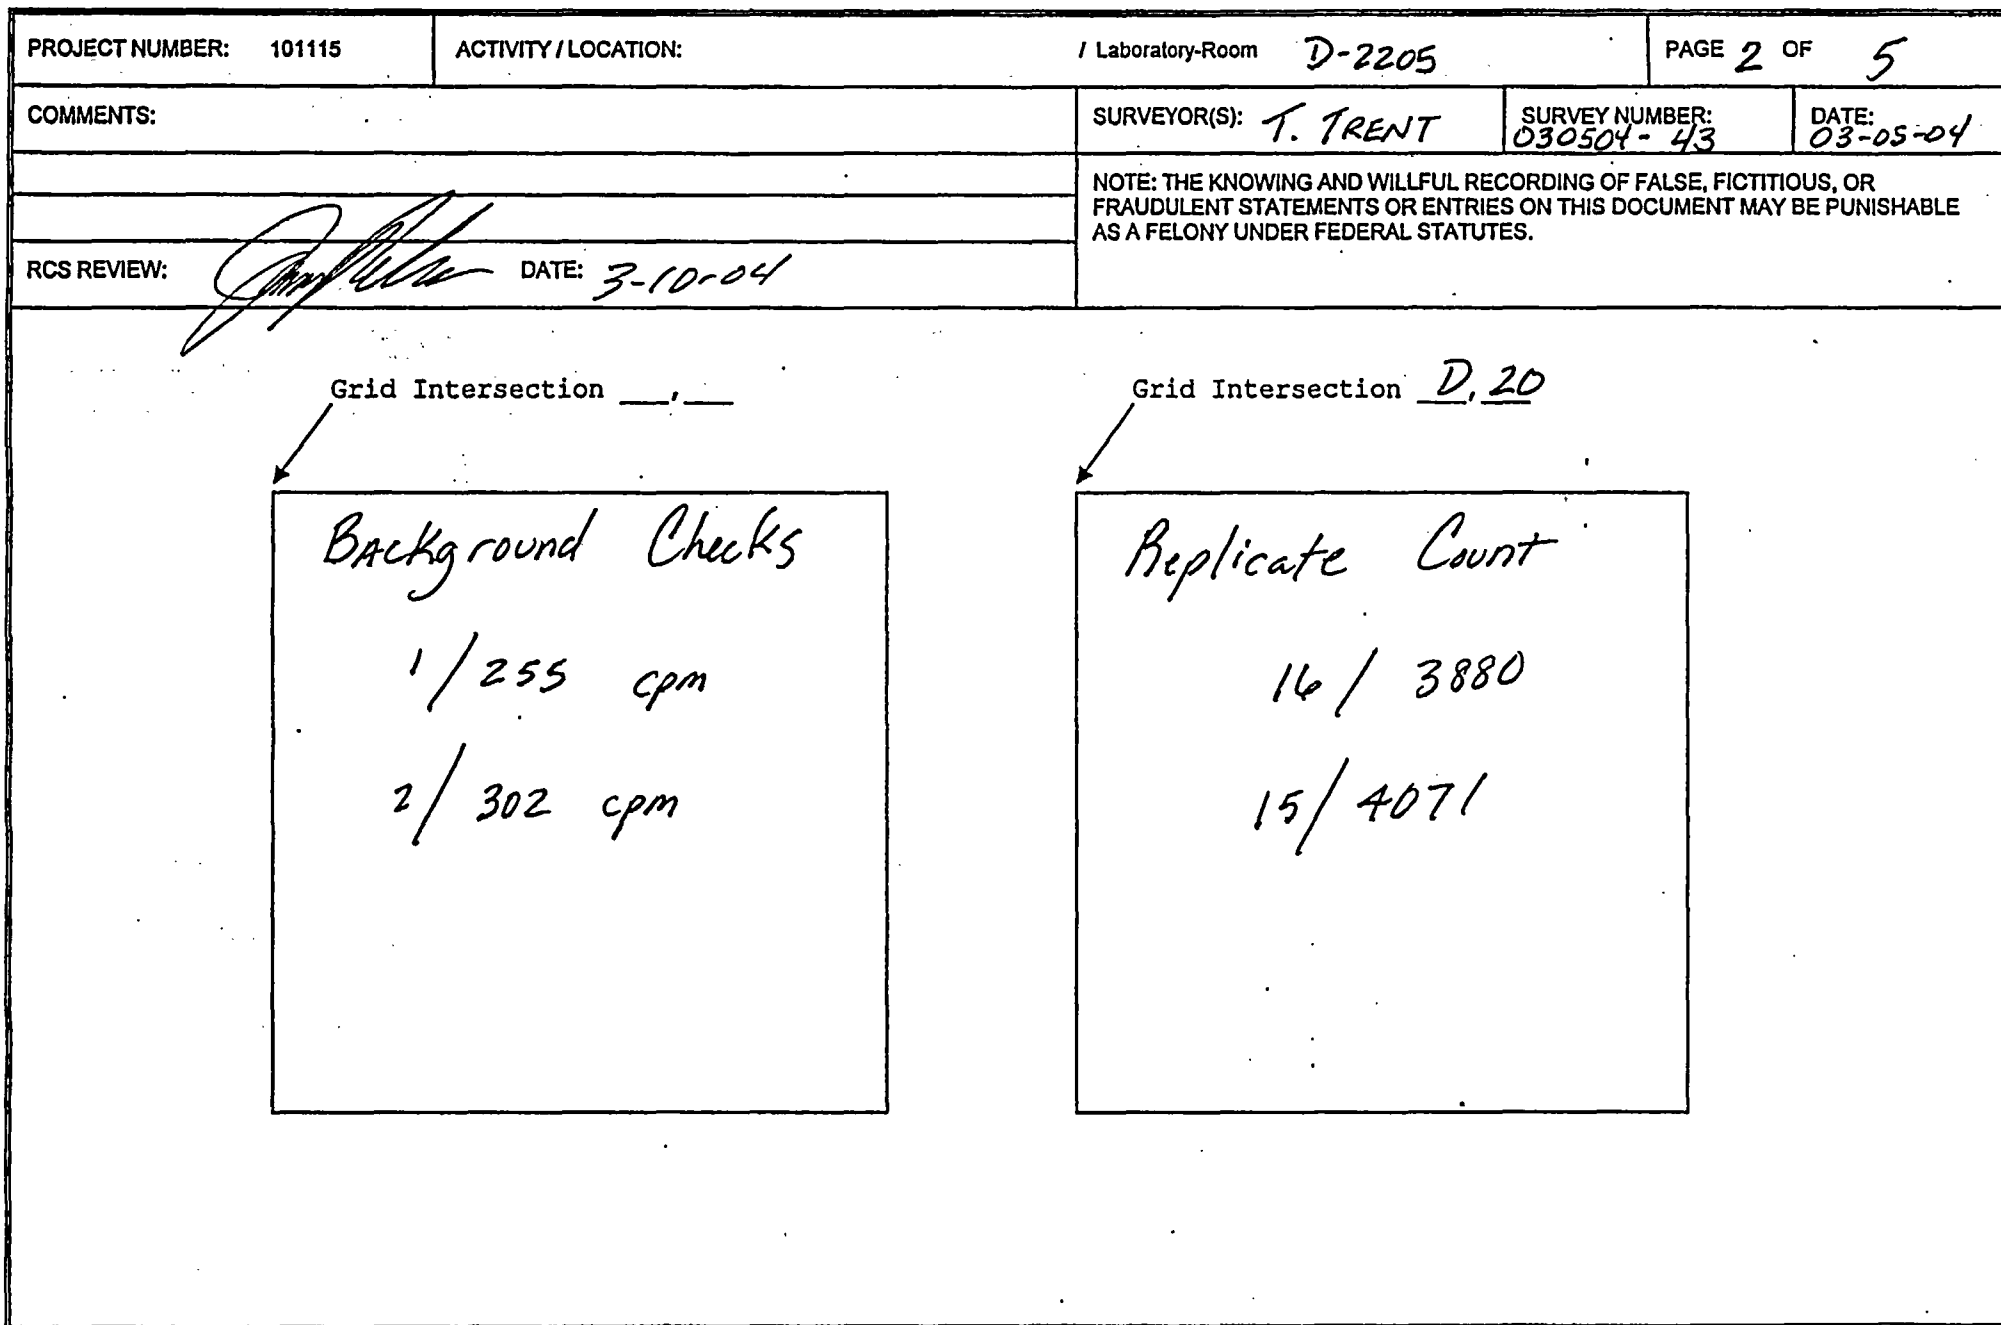 PROJECT NUMBER: 101115 ACTIVITY / LOCATION: / Laboratory-Room D-2205 PAGE 2 OF 5
COMMENTS: SURVEYOR(S): T. TRENT SURVEY NUMBER: 030504-43 DATE: 03-05-04
NOTE: THE KNOWING AND WILLFUL RECORDING OF FALSE, FICTITIOUS, OR
FRAUDULENT STATEMENTS OR ENTRIES ON THIS DOCUMENT MAY BE PUNISHABLE
AS A FELONY UNDER FEDERAL STATUTES.
RCS REVIEW: DATE: 3-10-04
Grid Intersection __,__
Grid Intersection D, 20
Background Checks
1/255 cpm
2/302 cpm
Replicate Count
16/3880
15/4071